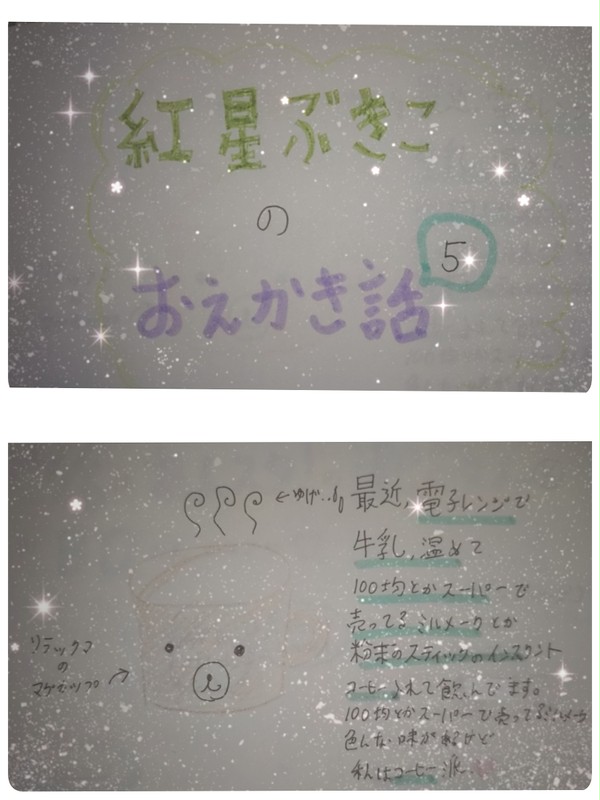 紅星ぶきこ
の
おえかき話
5
←ゆげ…
最近、電子レンジで
牛乳、温めて
100均とかスーパーで
売ってるミルメークとか
粉末のスティックのインスタント
コーヒー入れて飲んでます。
100均とかスーパーで売ってるミルメーク
色んな味があるけど
私はコーヒー派
リラックマ
の
マグカップ